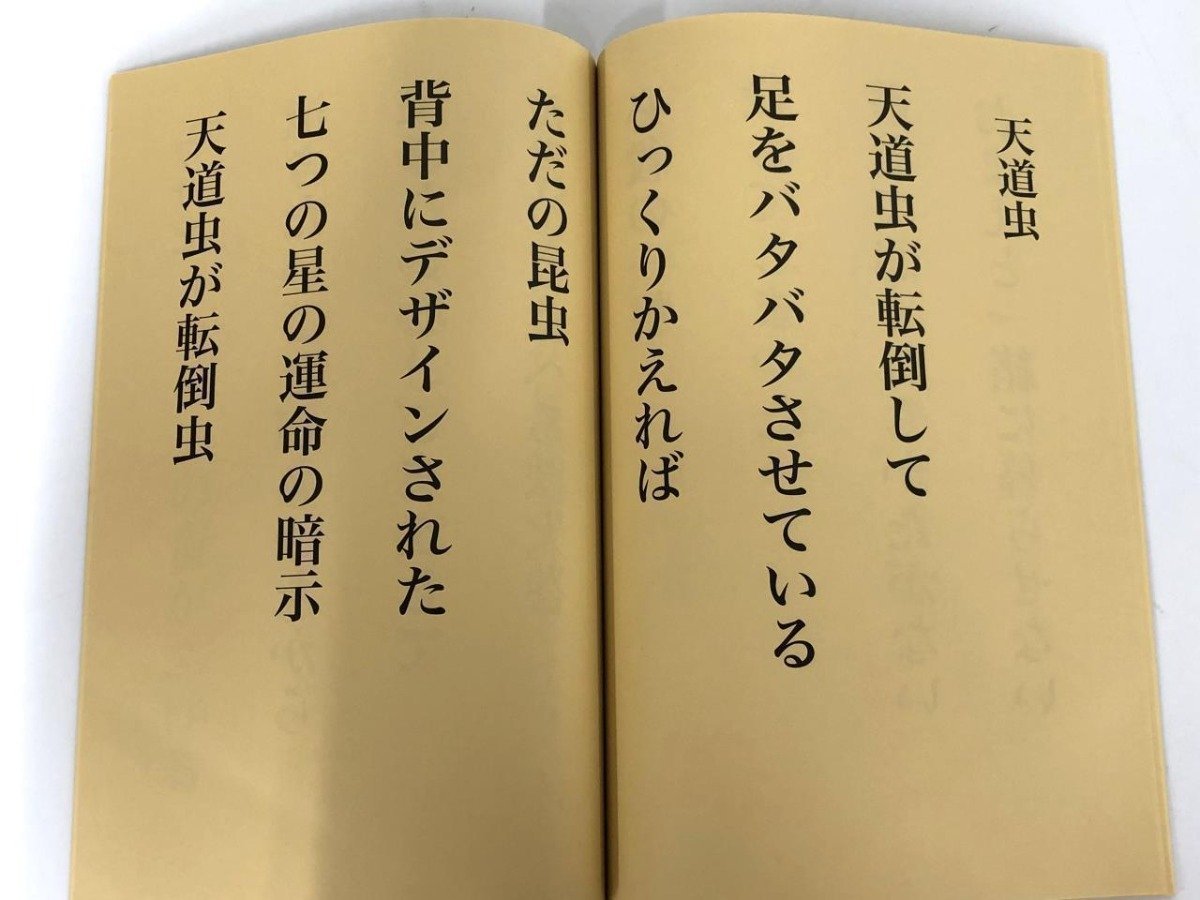 天道虫
天道虫が転倒して
足をバタバタさせている
ひっくりかえれば
ただの昆虫
背中にデザインされた
七つの星の運命の暗示
天道虫が転倒虫